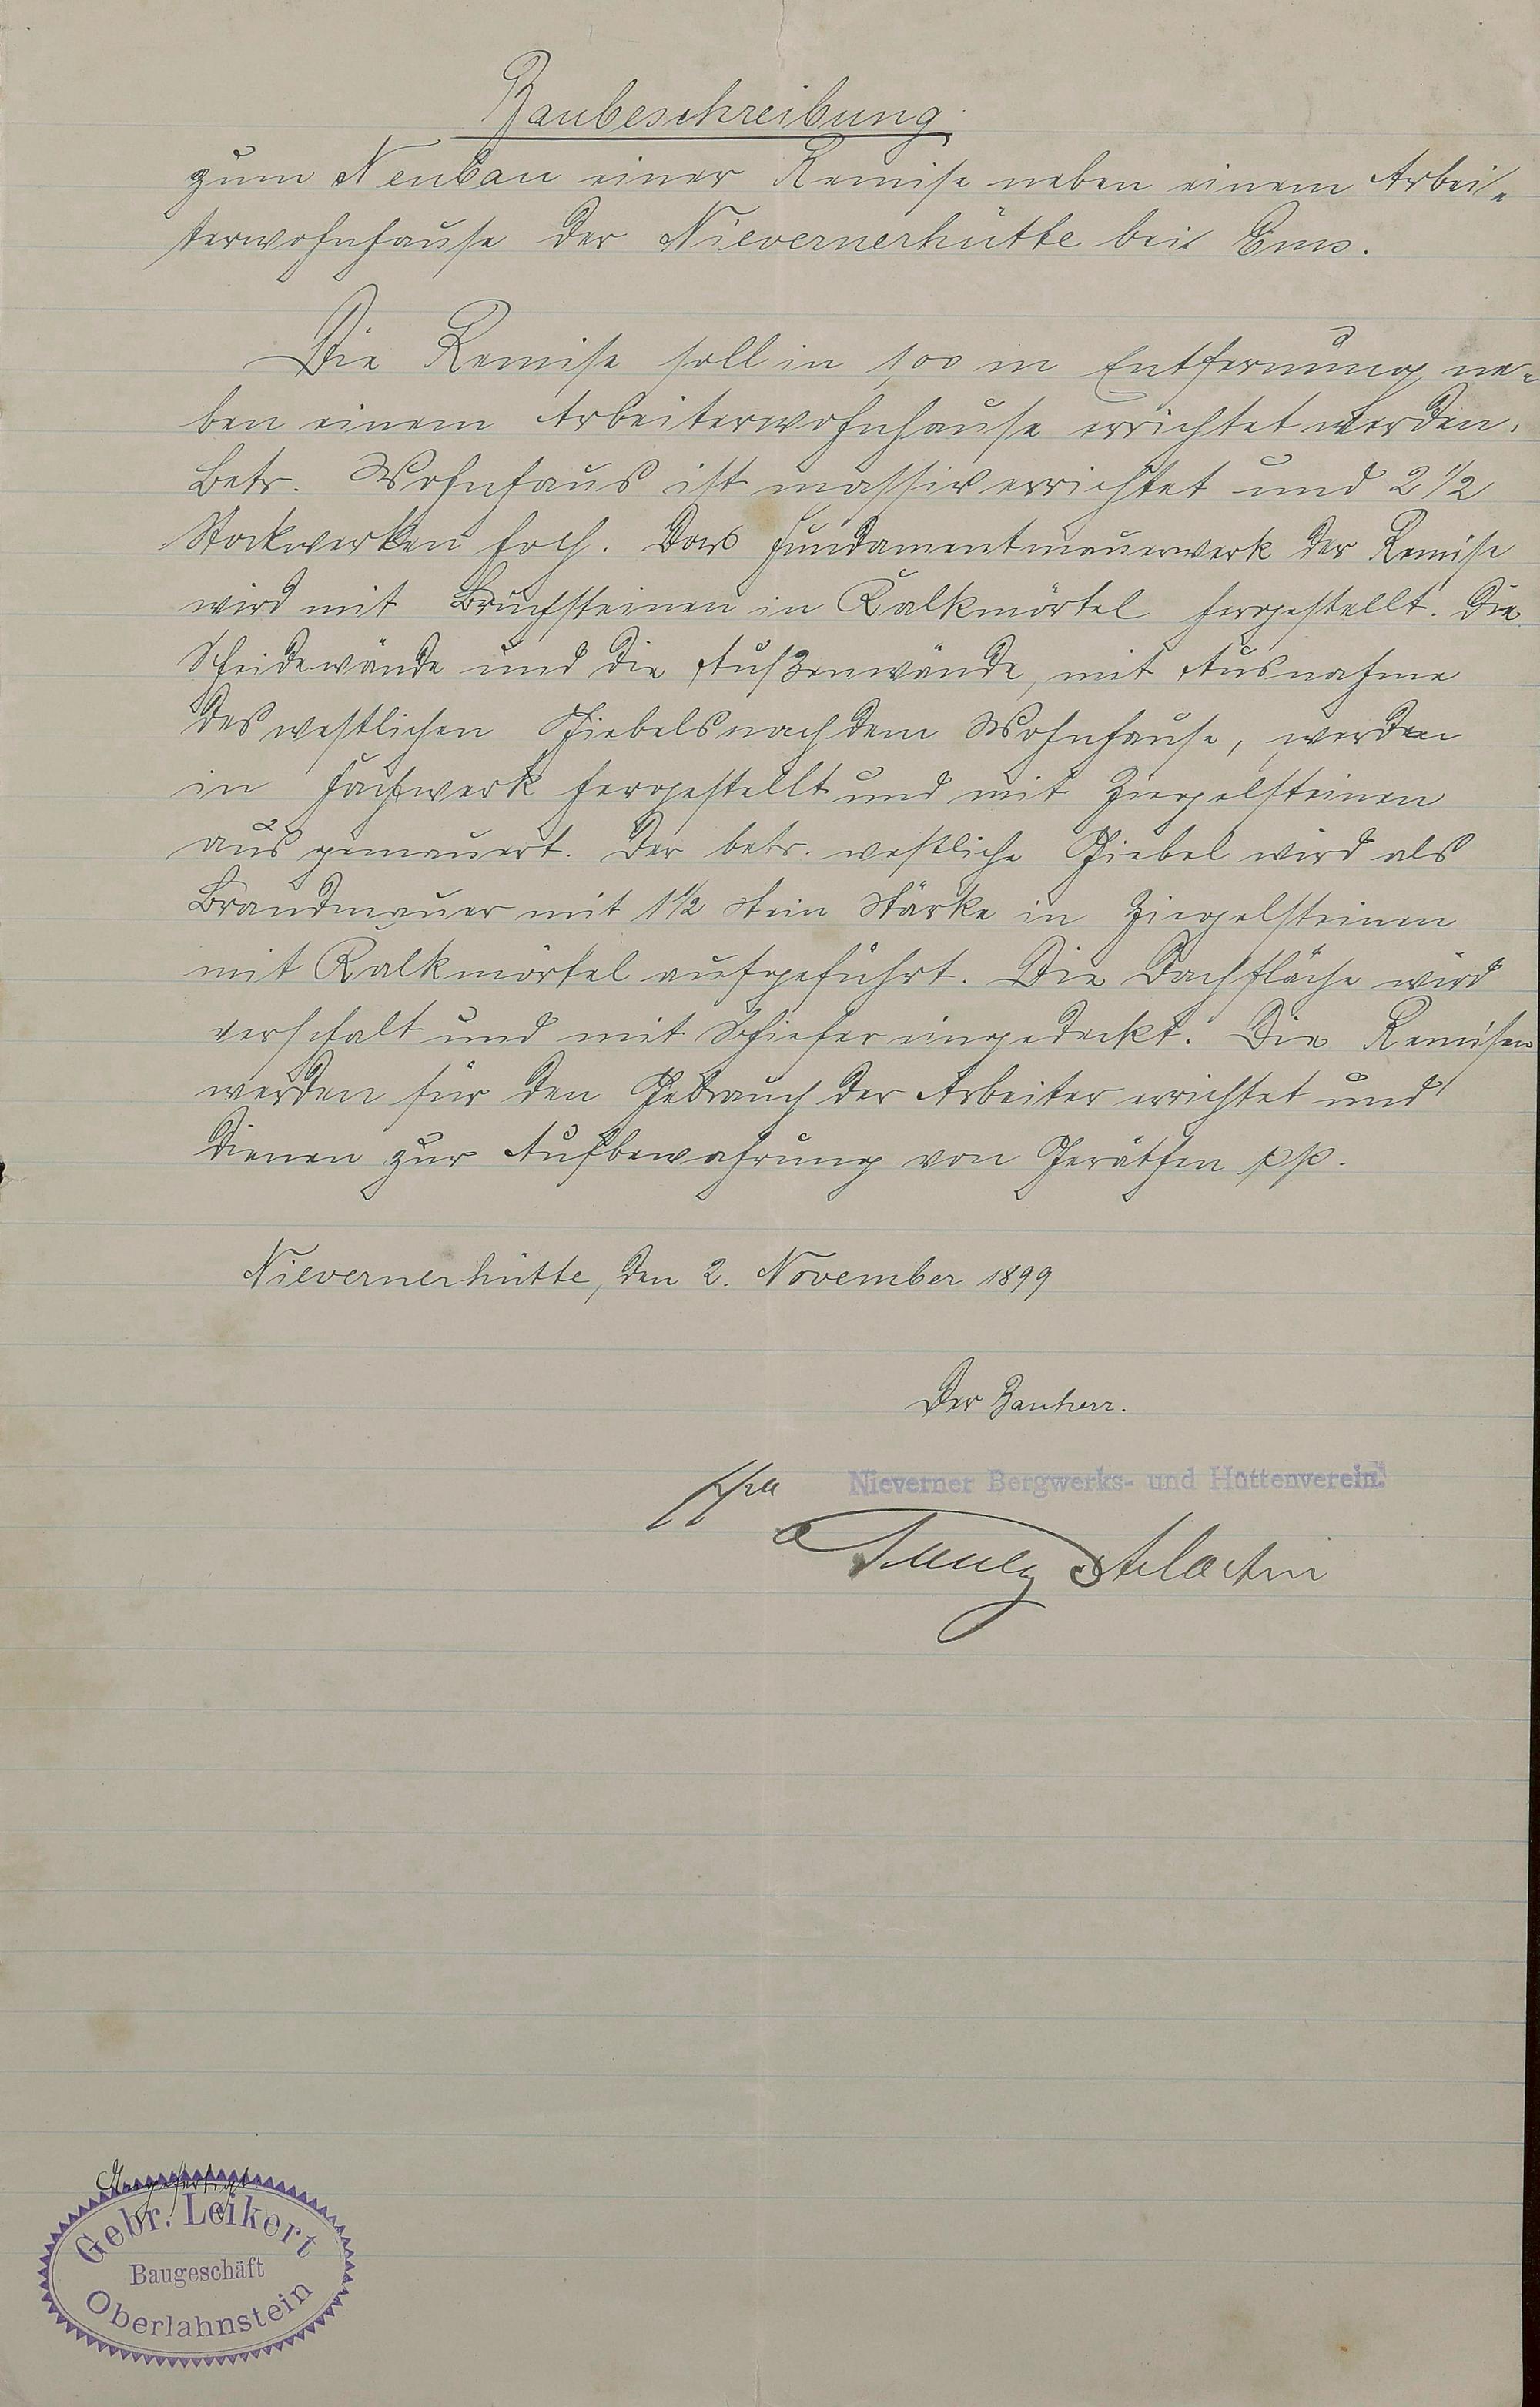 Baubeschreibung
zum Neubau einer Remise neben einem Arbei-
terwohnhause der Nievernerhütte bei Ems.
Die Remise soll in 1,00 m Entfernung ne-
ben einem Arbeiterwohnhause errichtet werden.
Betr. Wohnhaus ist massiv errichtet und 2 1/2
Stockwerken hoch. Das Fundamentmauerwerk der Remise
wird mit Bruchsteinen in Kalkmörtel hergestellt. Die
Scheidewände und die Außenwände, mit Ausnahme
des westlichen Giebels nach dem Wohnhause, werden
in Fachwerk hergestellt und mit Ziegelsteinen
ausgemauert. Der betr. westliche Giebel wird als
Brandmauer mit 1 1/2 Stein Stärke in Ziegelsteinen
mit Kalkmörtel aufgeführt. Die Dachfläche wird
verschalt und mit Schiefer eingedeckt. Die Remisen
werden für den Gebrauch der Arbeiter errichtet und
dienen zur Aufbewahrung von Geräthen pp.
Nievernerhütte, den 2. November 1899
Der Bauherr.
ppa Nieverner Bergwerks- und Hüttenverein.
Angefertigt
Gebr. Leikert
Baugeschäft
Oberlahnstein